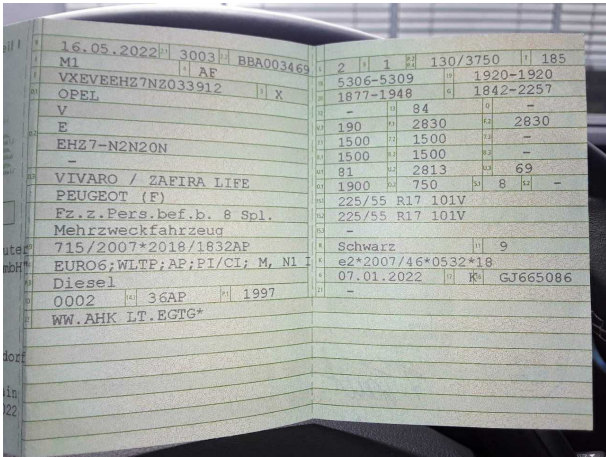 16.05.2022 3003 BBA003469
M1 AF
VXEVEEHZ7NZ033912 X
OPEL
V
E
EHZ7-N2N20N
–
VIVARO / ZAFIRA LIFE
PEUGEOT (F)
Fz.z.Pers.bef.b. 8 Spl.
Mehrzweckfahrzeug
715/2007*2018/1832AP
EURO6;WLTP;AP;PI/CI; M, N1 I
Diesel
0002 36AP 1997
WW.AHK LT.EGTG*
2 1 130/3750 185
5306-5309 1920-1920
1877-1948 1842-2257
– 84 –
190 2830 2830
1500 1500 –
1500 1500 –
81 2813 69
1900 750 8 –
225/55 R17 101V
225/55 R17 101V
–
Schwarz 9
e2*2007/46*0532*18
07.01.2022 K GJ665086
–
dorf
022